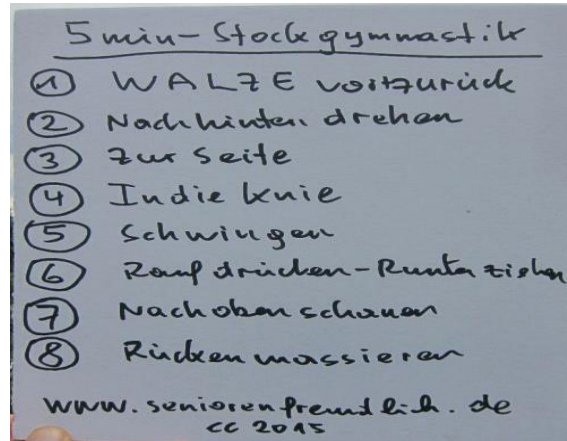 5 min - Stockgymnastik
1 WALZE vor+zurück
2 Nach hinten drehen
3 Zur Seite
4 In die Knie
5 Schwingen
6 Rauf drücken - Runter ziehen
7 Nach oben schauen
8 Rücken massieren
www.seniorenfreundlich.de
cc 2015